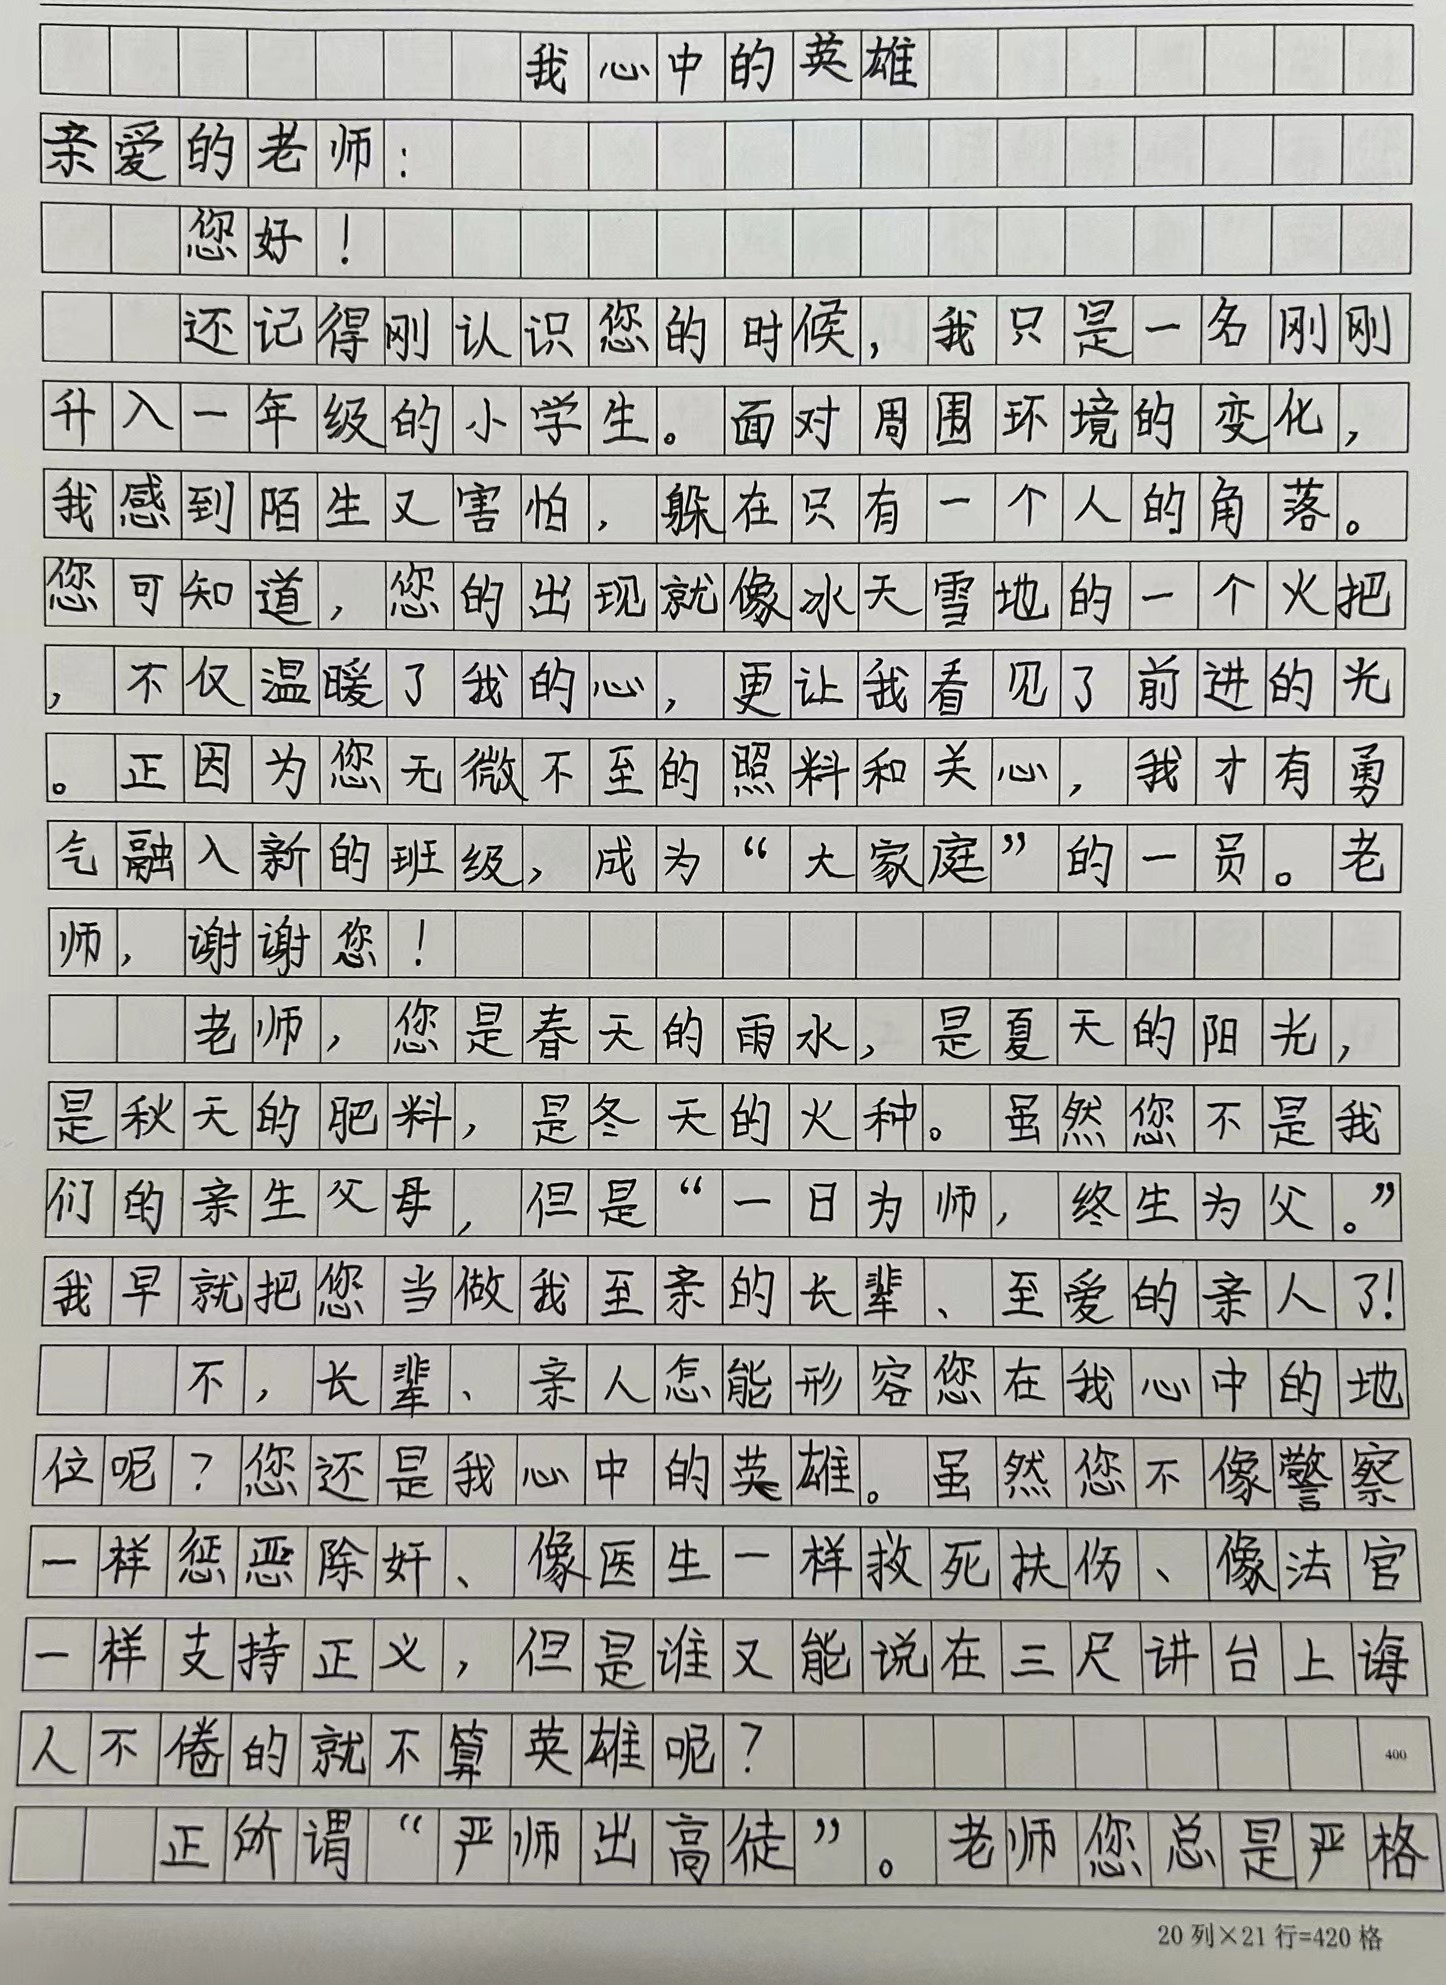 我心中的英雄
亲爱的老师：
您好！
还记得刚认识您的时候，我只是一名刚刚
升入一年级的小学生。面对周围环境的变化，
我感到陌生又害怕，躲在只有一个人的角落。
您可知道，您的出现就像冰天雪地的一个火把
，不仅温暖了我的心，更让我看见了前进的光
。正因为您无微不至的照料和关心，我才有勇
气融入新的班级，成为“大家庭”的一员。老
师，谢谢您！
老师，您是春天的雨水，是夏天的阳光，
是秋天的肥料，是冬天的火种。虽然您不是我
们的亲生父母，但是“一日为师，终生为父。”
我早就把您当做我至亲的长辈、至爱的亲人了！
不，长辈、亲人怎能形容您在我心中的地
位呢？您还是我心中的英雄。虽然您不像警察
一样惩恶除奸、像医生一样救死扶伤、像法官
一样支持正义，但是谁又能说在三尺讲台上诲
人不倦的就不算英雄呢？
400
正所谓“严师出高徒”。老师您总是严格
20列×21行=420格